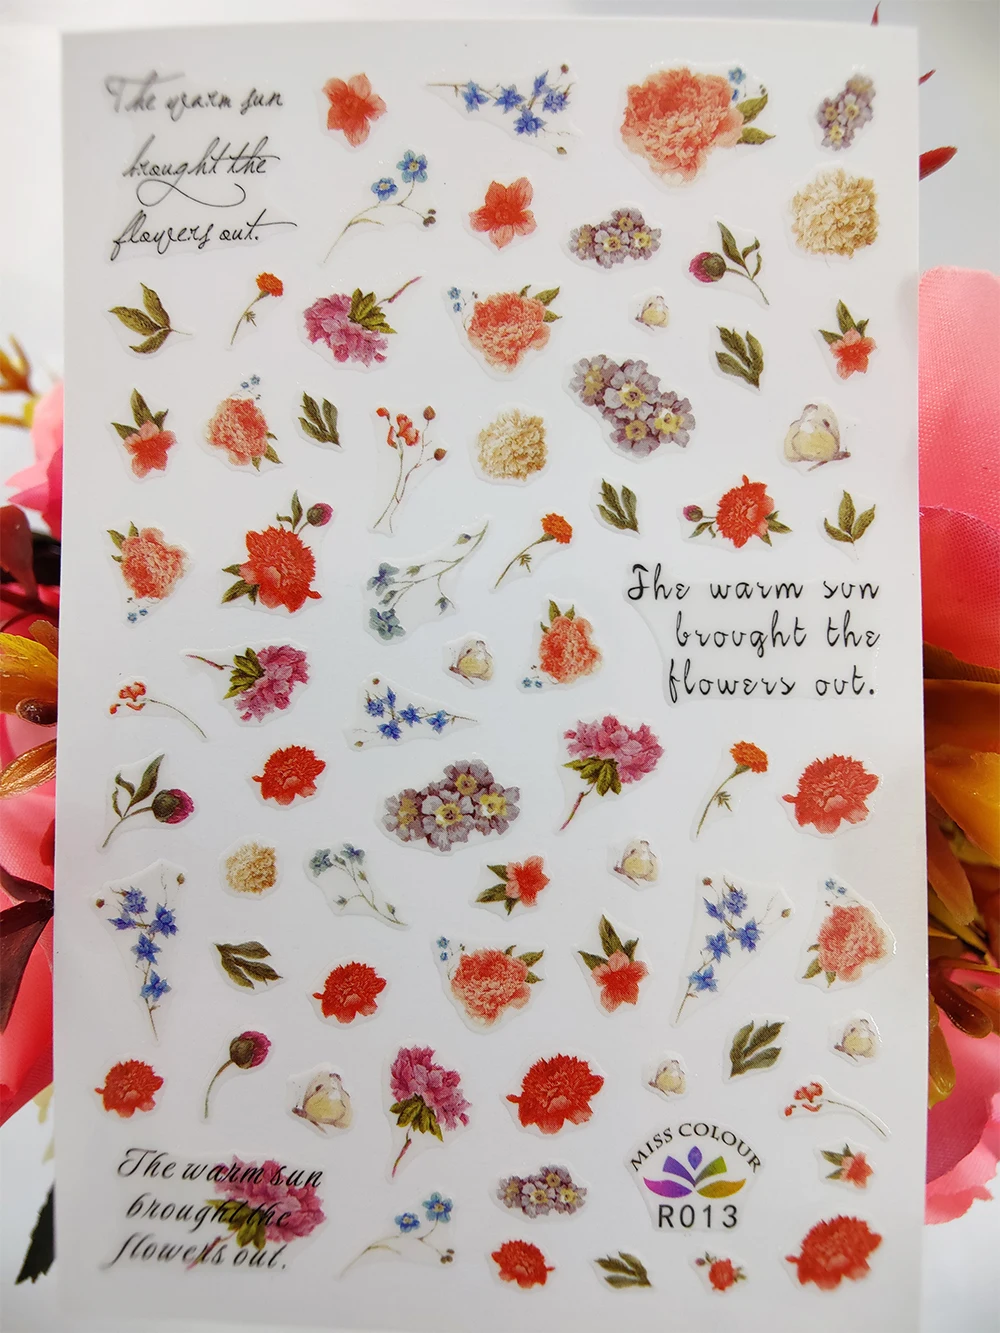 The warm sun
brought the
flowers out.
The warm sun
brought the
flowers out.
The warm sun
brought the
flowers out.
MISS COLOUR
R013